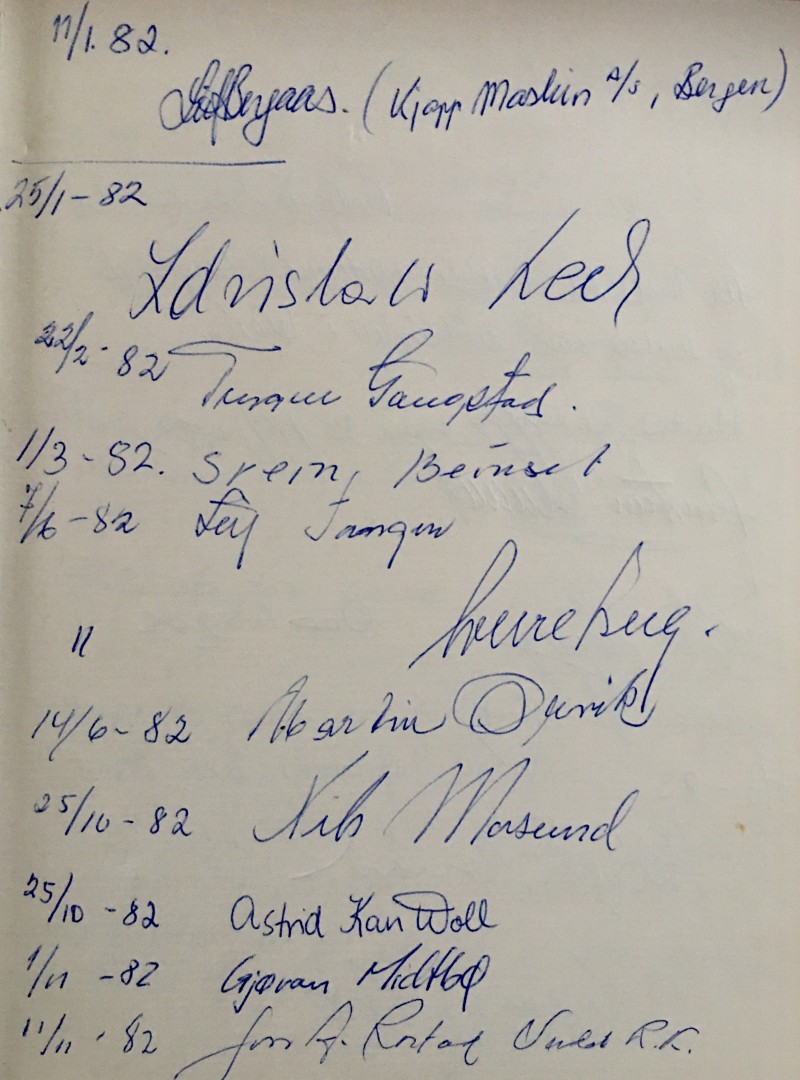 11/1. 82.
Leif Bergaas. (Kjapp Maskin A/S, Bergen)
25/1-82
Zdzislaw Lech
22/2-82 Gangstad.
1/3-82. Svein Beinset
7/6-82 Leif Tangen
"
14/6-82 Martin
25/10-82 Nils Masund
25/10-82 Astrid Kari Woll
1/11-82 Gjøran Midtbø
11/11-82 R.K.